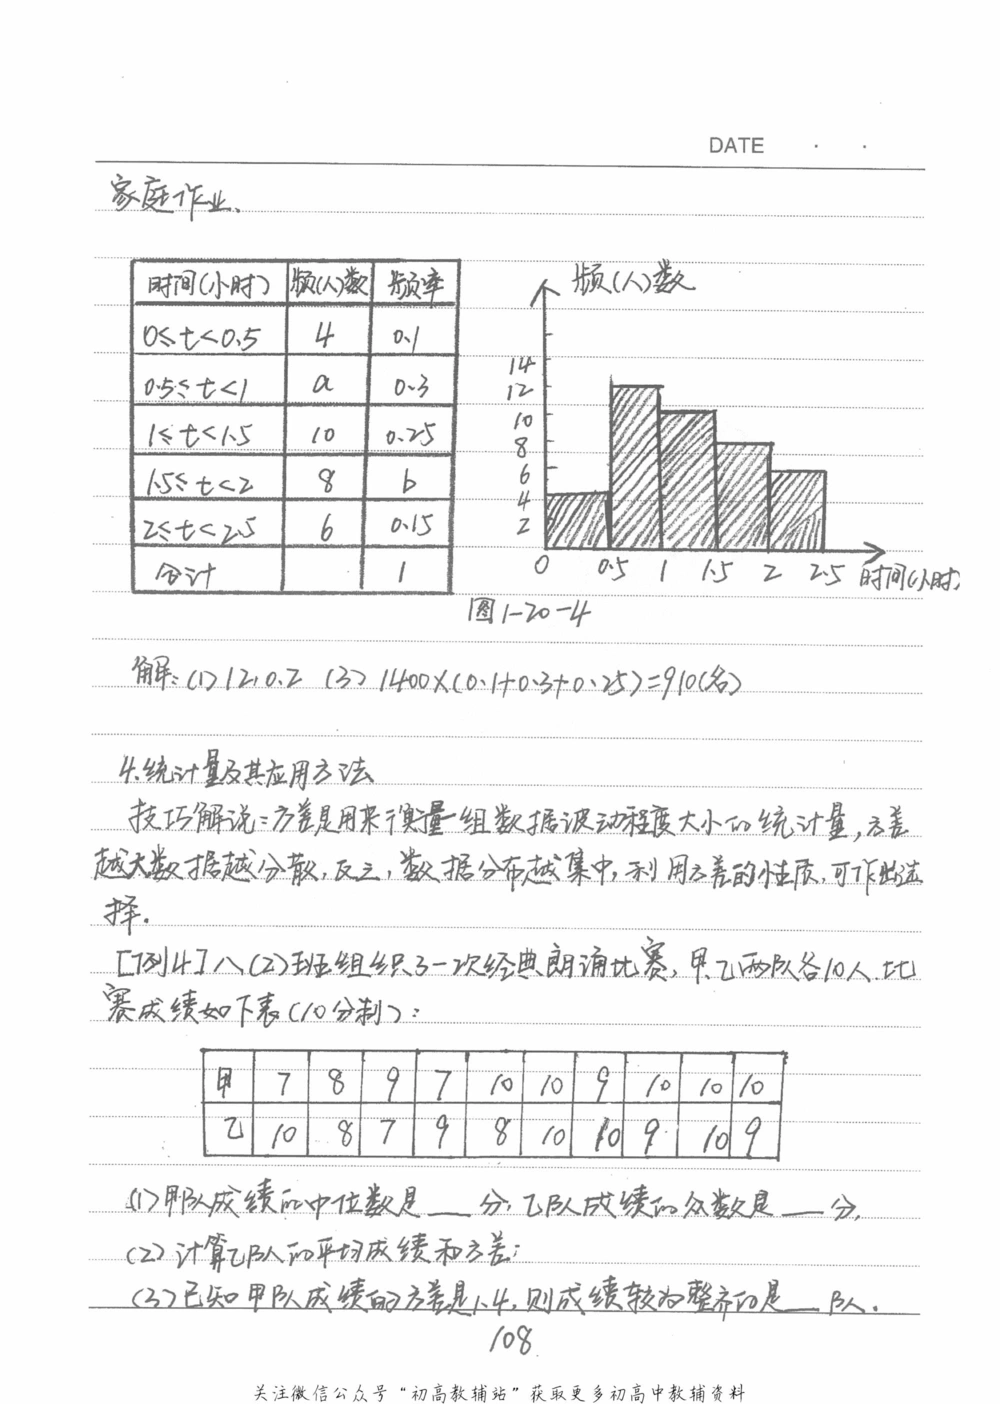 DATE · ·
家庭作业.
时间(小时) 频(人)数 频率
0≤t<0.5 4 0.1
0.5≤t<1 a 0.3
1≤t<1.5 10 0.25
1.5≤t<2 8 b
2≤t<2.5 6 0.15
合计 1
频(人)数
14
12
10
8
6
4
2
0 0.5 1 1.5 2 2.5 时间(小时)
图1-20-4
解:(1)12,0.2 (3) 1400×(0.1+0.3+0.25)=910(名)
4.统计量及其应用方法
技巧解说:方差是用来衡量一组数据波动程度大小的统计量,方差
越大数据越分散,反之,数据分布越集中,利用方差的性质,可作出选
择.
[例4]八(2)班组织了一次经典朗诵比赛,甲.乙两队各10人.比
赛成绩如下表(10分制):
甲 7 8 9 7 10 10 9 10 10 10
乙 10 8 7 9 8 10 10 9 10 9
(1)甲队成绩的中位数是___分,乙队成绩的众数是___分,
(2)计算乙队的平均成绩和方差;
(3)已知甲队成绩的方差是1.4,则成绩较为整齐的是___队.
108
关注微信公众号“初高教辅站”获取更多初高中教辅资料